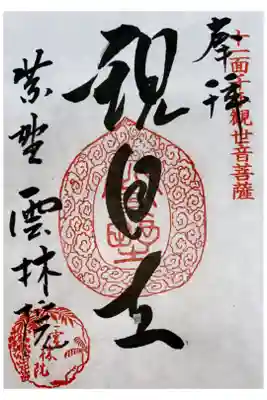 十一面千手観世音菩薩
奉拝
観自在
紫野
雲林院
雲林院